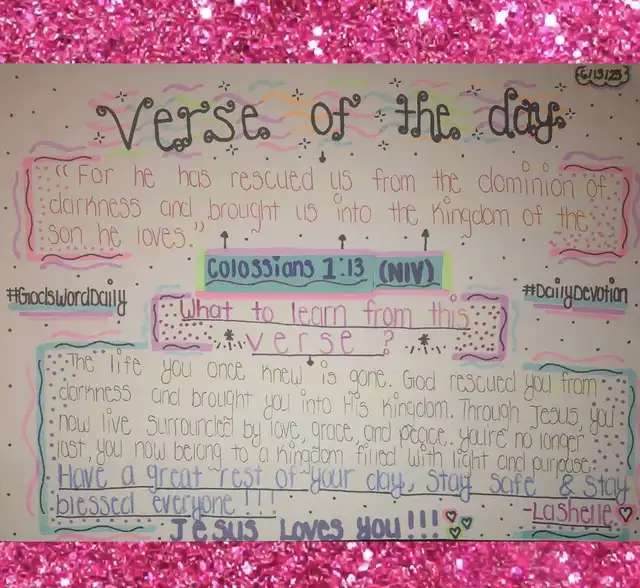 6/13/25
Verse of the day
"For he has rescued us from the dominion of
darkness and brought us into the kingdom of the
son he loves."
Colossians 1:13 (NIV)
#GodsWordDaily
#DailyDevotion
What to learn from this
verse?
The life you once knew is gone. God rescued you from
darkness and brought you into His Kingdom. Through Jesus, you
now live surrounded by love, grace, and peace. you're no longer
lost, you now belong to a kingdom filled with light and purpose.
Have a great rest of your day, Stay safe & Stay
blessed everyone!!!
-Lashelle
Jesus Loves you!!!